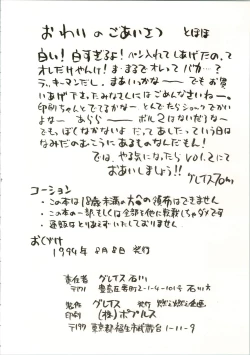 おわりのごあいさつ とほほ
白い!白すぎるよ!ペン入れてしあげたの、って
オレだけやんけ!ま・まるでオレってバカ…?
ラッキーマンだし、まあいいかな―― でもお買
いあげ下さったみなさんにはごめんなさいねー。
印刷ちゃんとでてるかなー とんでたらショックでかい
よなー あらら―― ボル2はないだろなー
でも、ぼくなかないよ だって、あしたっていう日は
なみだのむこうにあるものなんだもん!
では、やる気になったらvol.2にて
おあいしましょう!! グレイス石川
コーション
・この本は18歳未満の方への領布はできません
・この本の一部、もしくは全部を他に転載しちゃダメです
・通販はとりあえずいたしておりません
おくづけ
1994年 8月8日 発行
責任者 グレイス石川
製作 グレイス 発行
印刷 (株)ポプルス
〒197 東京都福生市武蔵台1-11-9